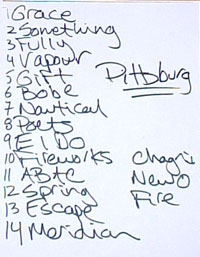 1 Grace
2 Something
3 Fully
4 Vapour
5 Gift
Pittsburg
6 Bobe
7 Nautical
8 Poets
9 El Do
10 Fireworks
11 AB+C
12 Spring
13 Escape
14 Meridian
Chagri
NewO
Fire